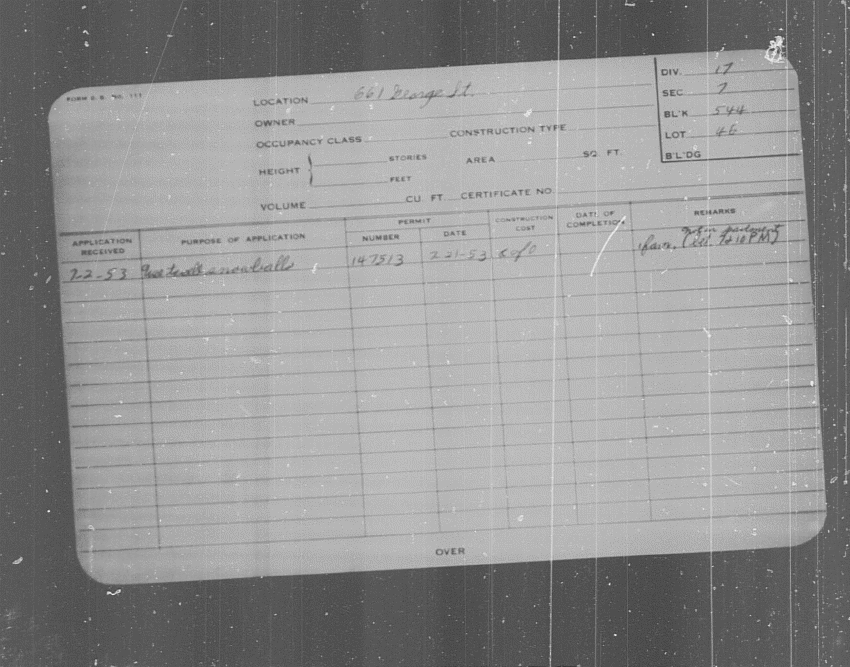 FORM S. B. NO. 111
LOCATION 661 George St.
OWNER
OCCUPANCY CLASS CONSTRUCTION TYPE
HEIGHT STORIES AREA SQ. FT.
FEET
VOLUME CU. FT. CERTIFICATE NO.
DIV. 17
SEC 7
BL'K 544
LOT 46
B'L'DG
APPLICATION RECEIVED PURPOSE OF APPLICATION PERMIT NUMBER DATE CONSTRUCTION COST DATE OF COMPLETION REMARKS
7-2-53 to sell snowballs 147513 7-21-53 favor.
OVER